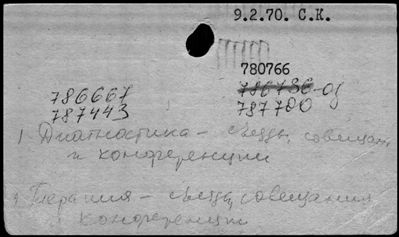 9.2.70. С.К.
780766
786667 786786-од
787443 787700
1) Диагностика - съезды, совещан.
и конференции
2) Терапия - съезды, совещания
и конференции